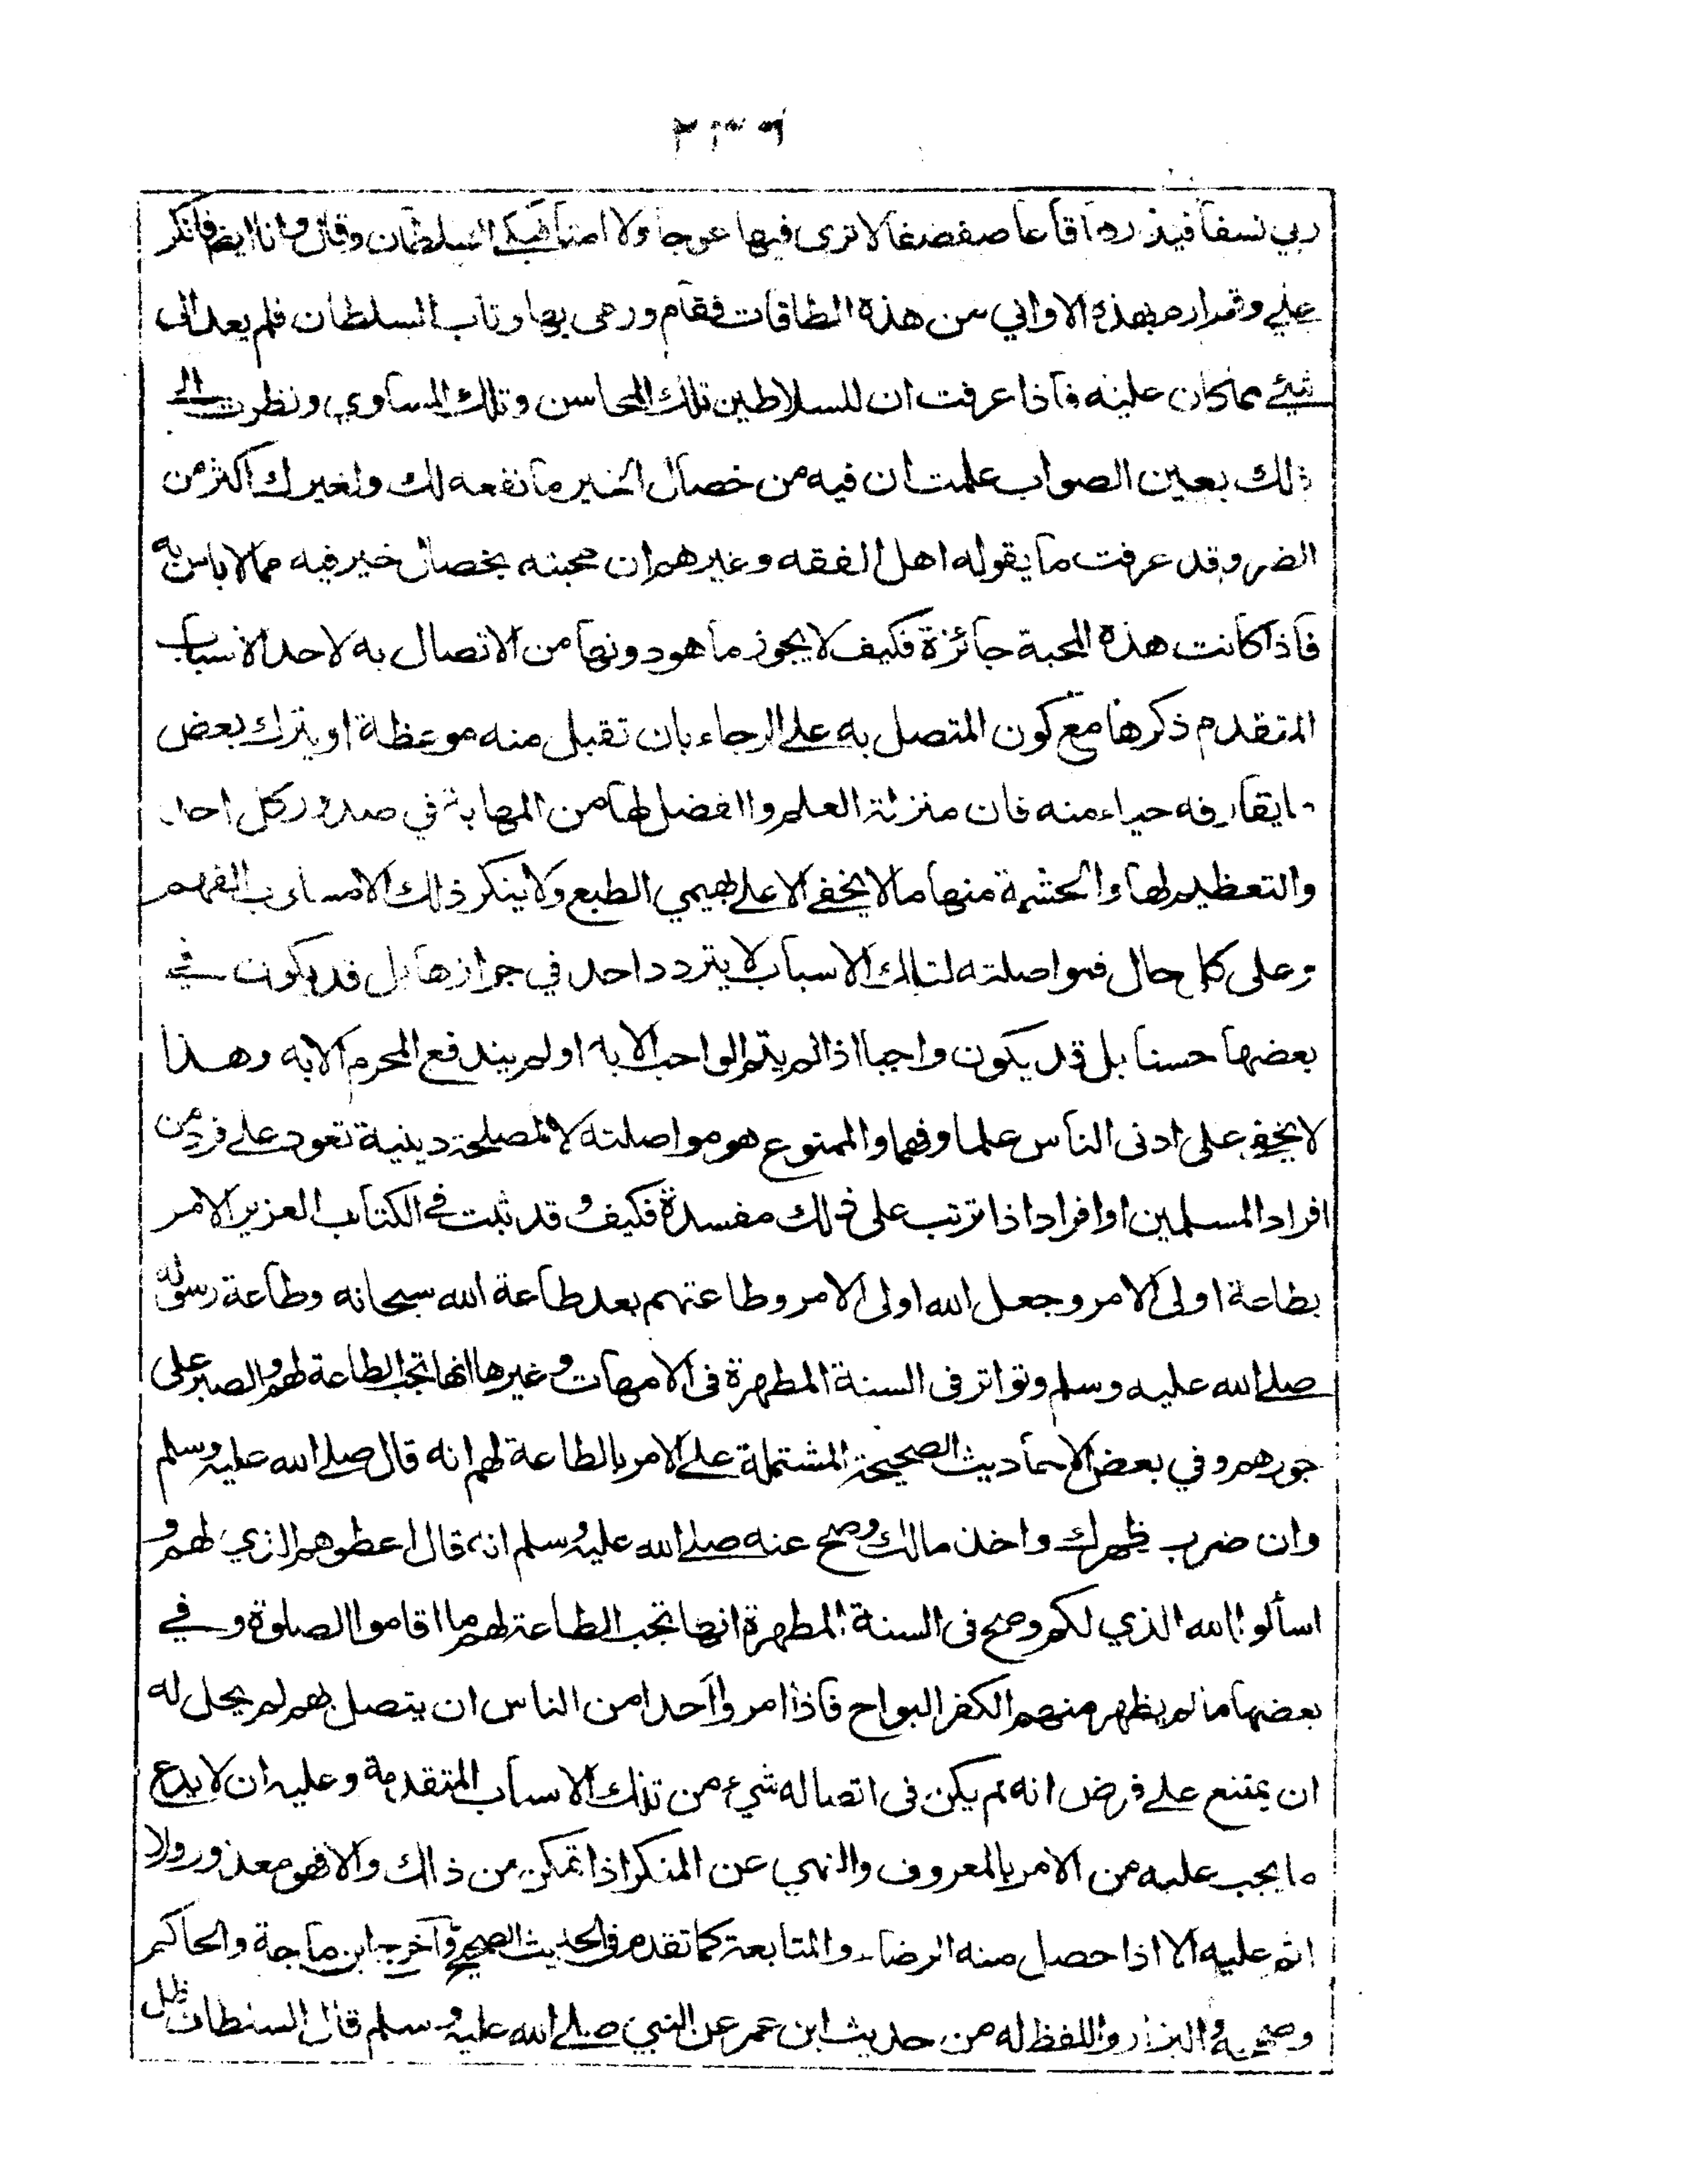 ربي نسفا فيذرها قاعا صفصفا لا ترى فيها عوجا ولا امتا فبكى السلطان وقال وانا ايضا فانكر
علي وقم ارم بهذه الاواني من هذه الطاقات فقام ورمى بها وتاب السلطان فلم يعد الى
شيء مما كان عليه فاذا عرفت ان للسلاطين تلك المحاسن وتلك المساوي ونظرت الى
ذلك بعين الصواب علمت ان فيه من خصال الخير ما نفعه لك ولغيرك اكثر من
الضر وقد عرفت ما يقوله اهل الفقه وغيرهم ان محبته بخصال خير فيه مما لا باس به
فاذا كانت هذه المحبة جائزة فكيف لا يجوز ما هو دونها من الاتصال به لاحد الاسباب
المتقدم ذكرها مع كون المتصل به على الرجاء بان تقبل منه موعظة او يترك بعض
ما يقارفه حياء منه فان منزلة العلم والفضل لها من المهابة في صدور كل احد
والتعظيم لها والحشمة منها ما لا يخفى الا على بهيمي الطبع ولا ينكر ذلك الا مسلوب الفهم
وعلى كل حال فمواصلته لتلك الاسباب لا يتردد احد في جوازها بل قد يكون في
بعضها حسنا بل قد يكون واجبا اذا لم يتم الواجب الا به او لم يندفع المحرم الا به وهذا
لا يخفى على ادنى الناس علما وفهما والممنوع هو مواصلته لا لمصلحة دينية تعود على فرد من
افراد المسلمين او افراد اذا ترتب على ذلك مفسدة فكيف و قد ثبت في الكتاب العزيز الامر
بطاعة اولى الامر وجعل الله اولى الامر وطاعتهم بعد طاعة الله سبحانه وطاعة رسوله
صلى الله عليه وسلم وتواتر في السنة المطهرة في الامهات وغيرها انها تجب الطاعة لهم والصبر على
جورهم وفي بعض الاحاديث الصحيحة المشتملة على الامر بالطاعة لهم انه قال صلى الله عليه وسلم
وان ضرب ظهرك واخذ مالك وصح عنه صلى الله عليه وسلم انه قال اعطوهم الذي لهم و
اسألوا الله الذي لكم وصح في السنة المطهرة انها تجب الطاعة لهم ما اقاموا الصلوة وفي
بعضها ما لم يظهر منهم الكفر البواح فاذا امروا احدا من الناس ان يتصل بهم لم يحل له
ان يمتنع على فرض انه لم يكن في اتصاله شيء من تلك الاسباب المتقدمة وعليه ان لا يدع
ما يجب عليه من الامر بالمعروف والنهي عن المنكر اذا تمكن من ذلك والا فهو معذور ولا
اثم عليه الا اذا حصل منه الرضاء والمتابعة كما تقدم في الحديث الصحيح وآخرج ابن ماجة والحاكم
وصححه والبزار واللفظ له من حديث ابن عمر عن النبي صلى الله عليه وسلم قال السلطان ظل